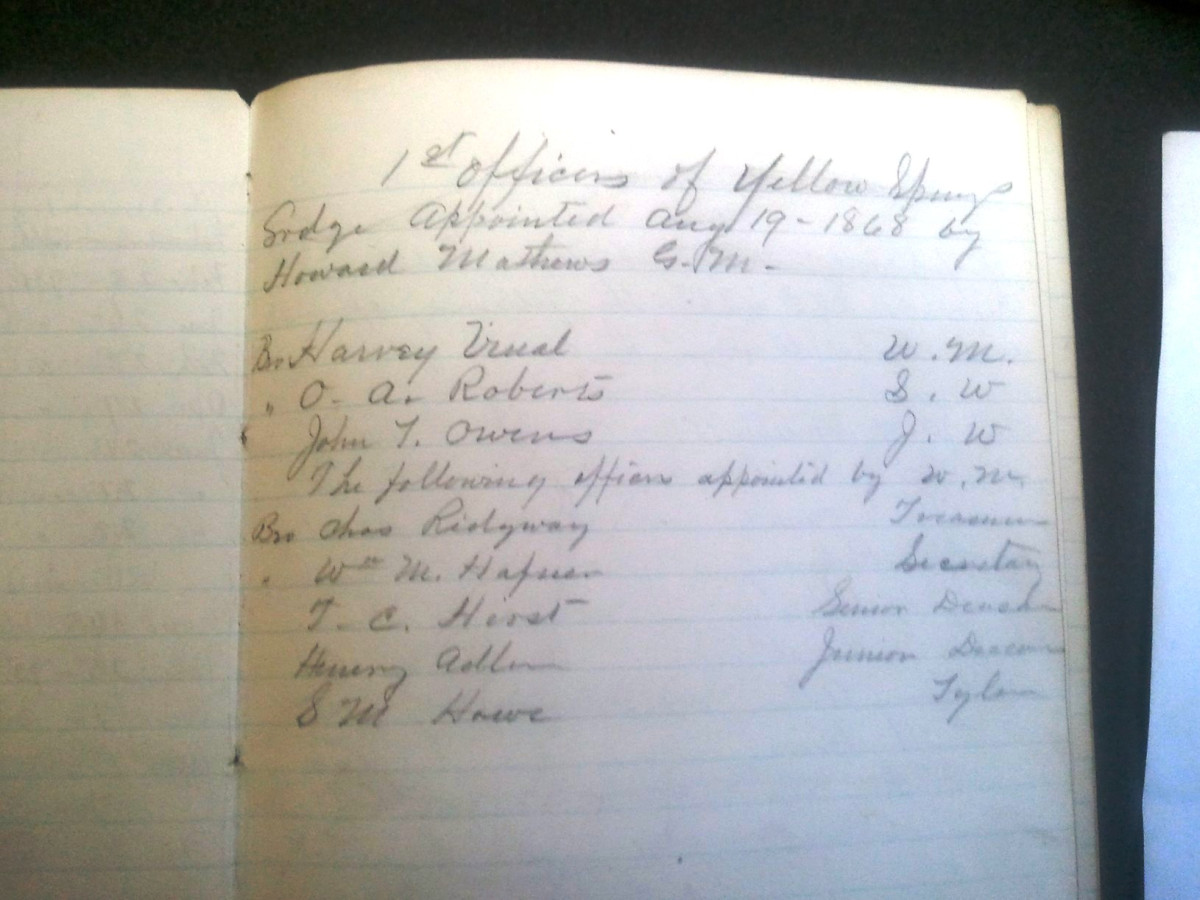 1st officers of Yellow Springs
Lodge Appointed Aug 19-1868 by
Howard Mathews G.M.
Bro Harvey Vinal W.M.
" O. A. Roberts S. W
John T. Owens J. W
The following officers appointed by W.M.
Bro Chas Ridgway Treasurer
" Wm M. Hafner Secretary
T. C. Hirst Senior Deacon
Henery Adler Junior Deacon
S M Howe Tyler